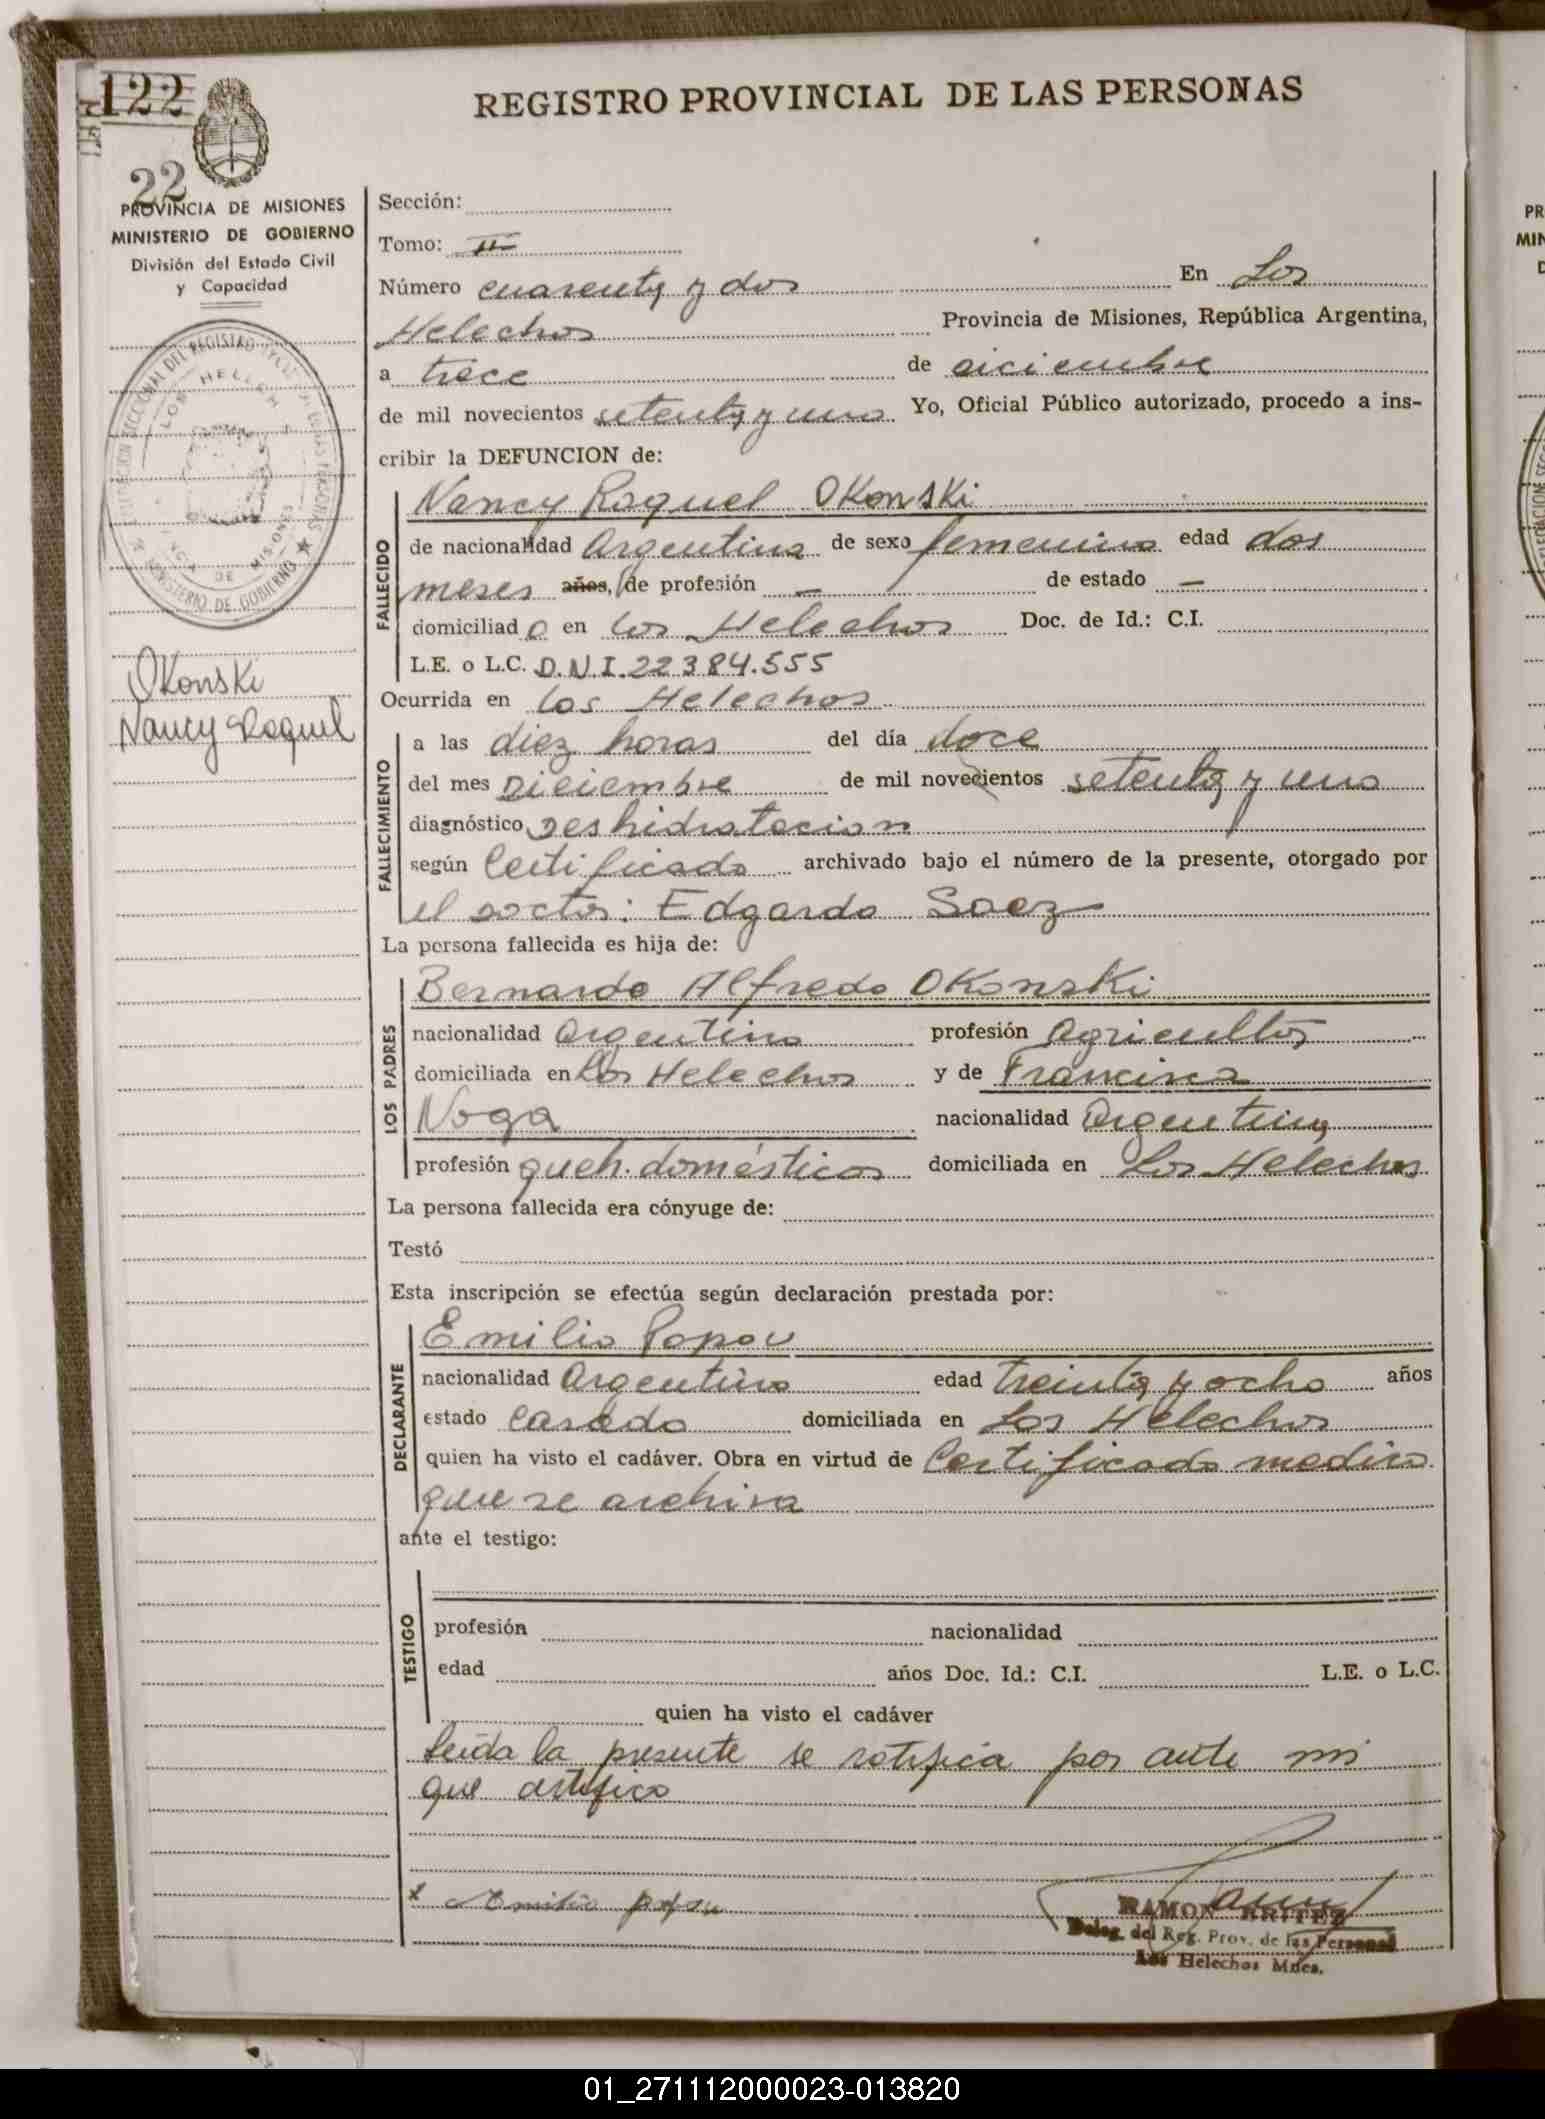 122
22
REGISTRO PROVINCIAL DE LAS PERSONAS
PROVINCIA DE MISIONES
MINISTERIO DE GOBIERNO
División del Estado Civil
y Capacidad
Okonski
Nancy Raquel
Sección:
Tomo: II
Número cuarenta y dos En Los
Helechos Provincia de Misiones, República Argentina,
a trece de diciembre
de mil novecientos setenta y uno Yo, Oficial Público autorizado, procedo a ins-
cribir la DEFUNCION de:
FALLECIDO
Nancy Raquel Okonski
de nacionalidad Argentina de sexo femenino edad dos
meses años, de profesión — de estado —
domiciliado en Los Helechos Doc. de Id.: C.I.
L.E. o L.C. D.N.I. 22384.555
Ocurrida en Los Helechos
FALLECIMIENTO
a las diez horas del día doce
del mes Diciembre de mil novecientos setenta y uno
diagnóstico Deshidratacion
según Certificado archivado bajo el número de la presente, otorgado por
el doctor: Edgardo Saez
La persona fallecida es hija de:
LOS PADRES
Bernardo Alfredo Okonski
nacionalidad Argentina profesión Agricultor
domiciliada en Los Helechos y de Francisca
Noga nacionalidad Argentina
profesión queh. domésticos domiciliada en Los Helechos
La persona fallecida era cónyuge de:
Testó
Esta inscripción se efectúa según declaración prestada por:
DECLARANTE
Emilio Popou
nacionalidad Argentino edad treinta y ocho años
estado Casado domiciliada en Los Helechos
quien ha visto el cadáver. Obra en virtud de Certificado medico
que se archiva
ante el testigo:
TESTIGO
profesión nacionalidad
edad años Doc. Id.: C.I. L.E. o L.C.
quien ha visto el cadáver
Leída la presente se ratifica por ante mi
que certifico
x Emilio popou
RAMON BRITEZ
Deleg. del Reg. Prov. de las Personas
Los Helechos Mnes.
01_271112000023-013820